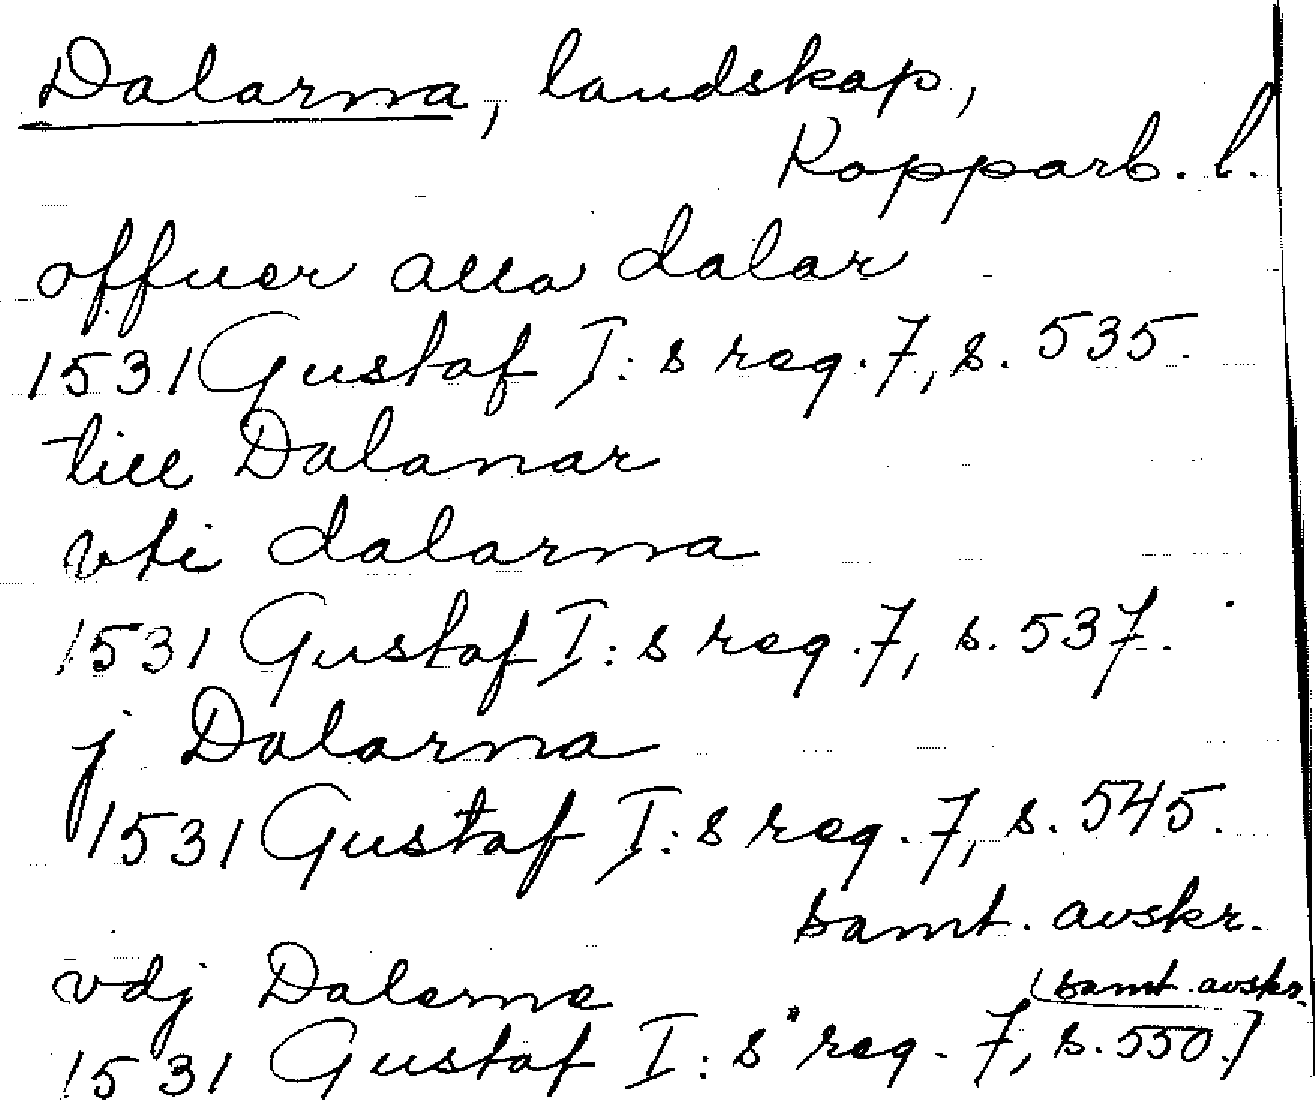 Dalarna, landskap,
Kopparb. l.
offuer alla dalar
1531 Gustaf I:s reg. 7, s. 535.
till Dalanar
vti dalarna
1531 Gustaf I:s reg. 7, s. 537.
j Dalarna
1531 Gustaf I:s reg. 7, s. 545.
samt. avskr.
vdj Dalerne
(samt. avskr.
1531 Gustaf I:s reg. 7, s. 550.)